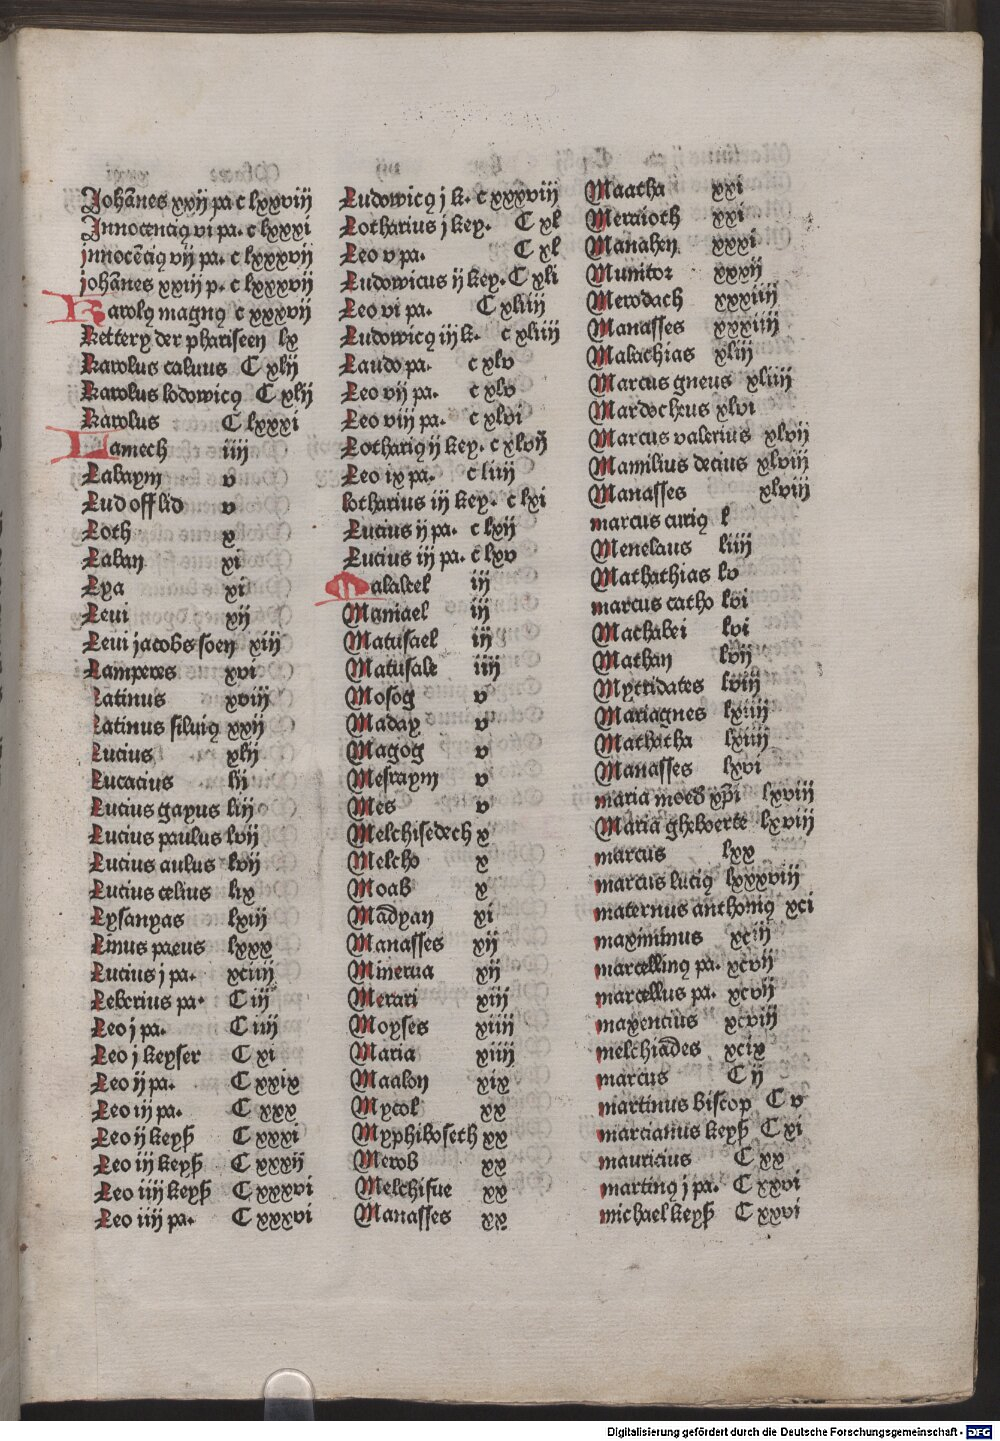 Johānes xxij pa c lxxviij
Innocenciꝰ vi pa. c lxxxi
innocēciꝰ vij pa. c lxxxvij
johānes xxiij p. c lxxxvij
Karolꝰ magnꝰ c xxxvij
Kettery der phariseen lx
Karolus caluus C xlij
Karolus lodowicꝰ C xlij
Karolus C lxxxi
Lamech iiij
Labaym v
Lud off lid v
Loth x
Laban xi
Lya xi
Leui xij
Leui jacobs soen xiij
Lamperes xvi
Latinus xviij
Latinus siluiꝰ xxij
Lucius xlij
Lucacius lij
Lucius gayus liij
Lucius paulus lvij
Lucius aulus lvij
Lucius celius lix
Lysanyas lxiij
Linus paeus lxxx
Lucius j pa. xciiij
Leberius pa. C iij
Leo j pa. C iiij
Leo j keyser C xi
Leo ij pa. C xxix
Leo iij pa. C xxx
Leo ij keyß C xxxi
Leo iij keyß C xxxij
Leo iiij keyß C xxxvi
Leo iiij pa. C xxxvi
Ludowicꝰ j k. c xxxviij
Lotharius j key. C xl
Leo v pa. C xl
Ludowicus ij key. C xli
Leo vi pa. C xliij
Ludowicꝰ iij k. c xliiij
Laudo pa. c xlv
Leo vij pa. c xlv
Leo viij pa. c xlvi
Lothariꝰ ij key. c xlvij
Leo ix pa. c liiij
lotharius iij key. c lxi
Lucius ij pa. c lxij
Lucius iij pa. c lxv
Malaleel iij
Maniael iij
Matusael iij
Matusale iiij
Mosog v
Maday v
Magog v
Mesraym v
Mes v
Melchisedech x
Melcho x
Moab x
Mādyan xi
Manasses xij
Minerua xij
Merari xiij
Moyses xiiij
Maria xiiij
Maalon xix
Mycol xx
Myphiboseth xx
Merob xx
Melchisue xx
Manasses xx
Maacha xxi
Meraioth xxi
Manahen xxxi
Munitor xxxij
Merodach xxxiiij
Manasses xxxiiij
Malachias xliij
Marcus gneus xliiij
Mardocheus xlvi
Marcus valerius xlvij
Mamilius decius xlviij
Manasses xlviij
marcus curiꝰ l
Menelaus liiij
Mathathias lv
marcus catho lvi
Machabei lvi
Mathan lvij
Myttidates lviij
Mariagnes lxiiij
Mathatha lxiiij
Manasses lxvi
maria moed xp̄i lxviij
Maria gheboerte lxviij
marcus lxx
marcus luciꝰ lxxxviij
maternus anthoniꝰ xci
maximinus xciij
marcellinꝰ pa. xcvij
marcellus pa. xcvij
maxencius xcviij
melchiādes xcix
marcus C ij
martinus biscop C v
marcianus keyß C xi
mauricius C xx
martinꝰ j pa. C xxvi
michael keyß C xxvi
Digitalisierung gefördert durch die Deutsche Forschungsgemeinschaft - DFG